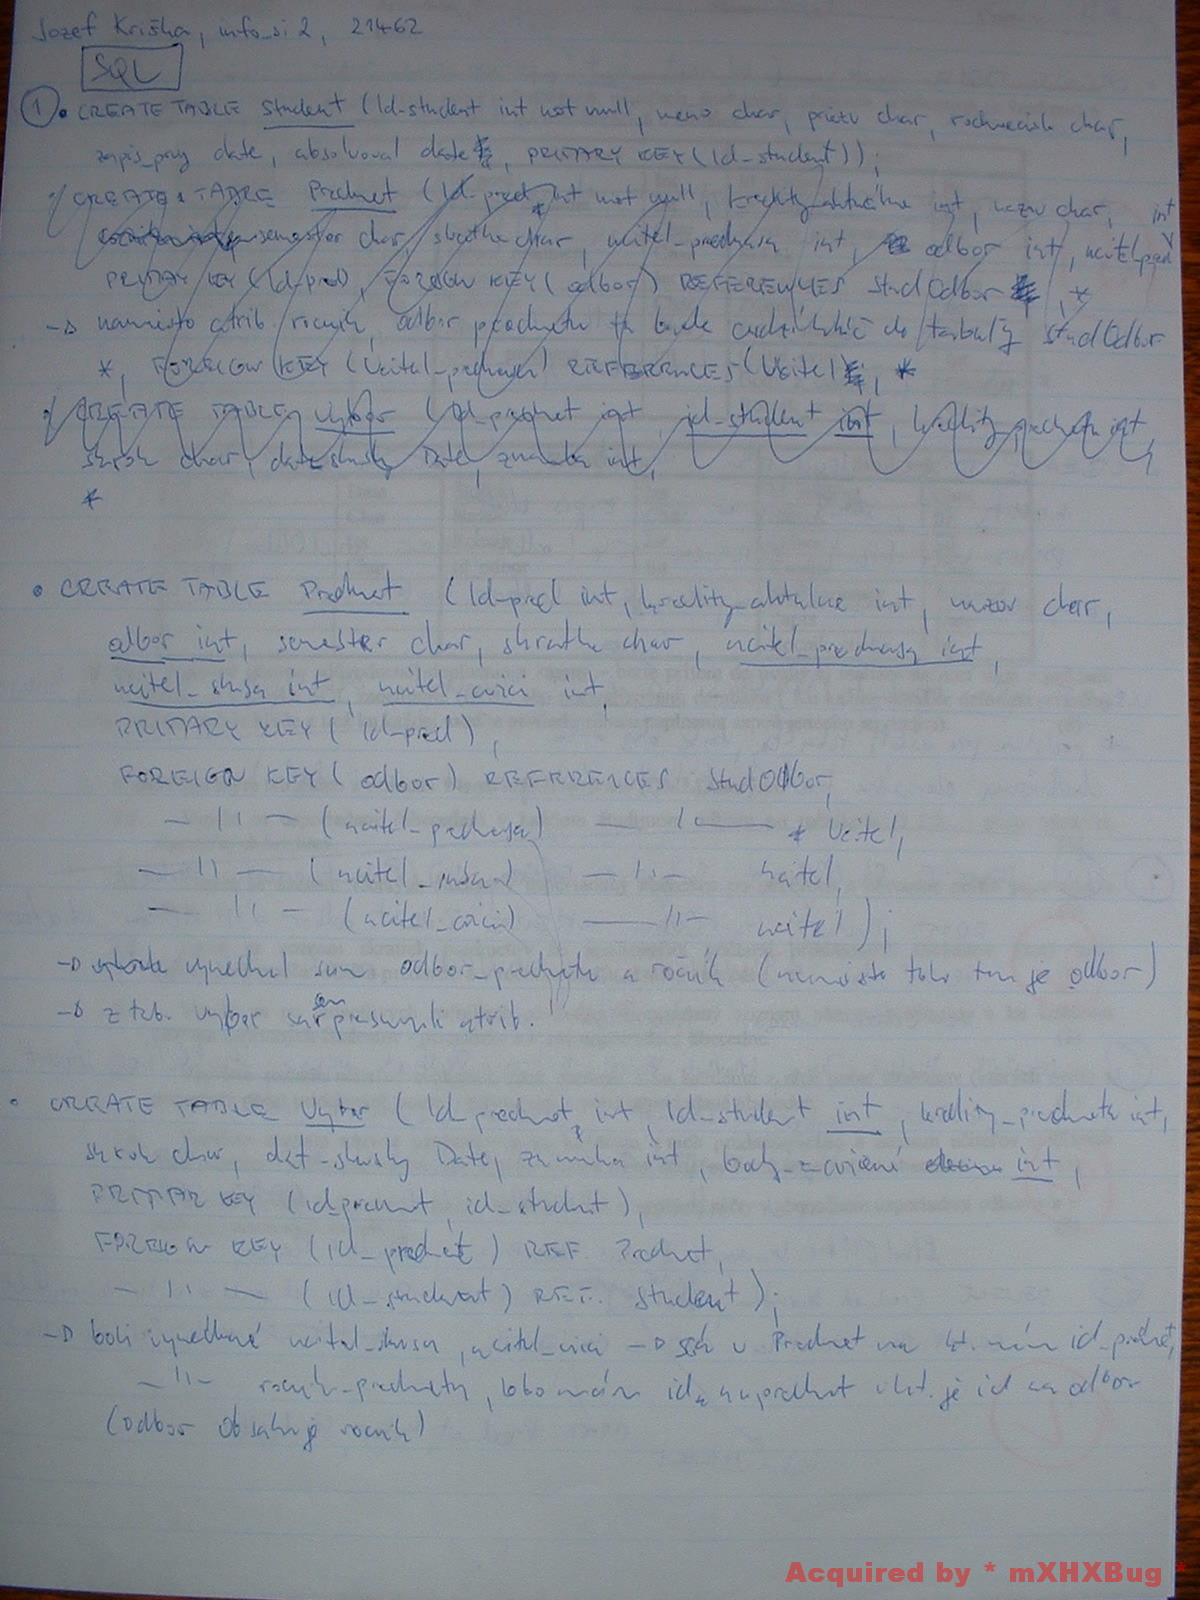 Jozef Kriška, info_si 2, 21462
SQL
1 • CREATE TABLE Student (Id-student int not null, meno char, priezv char, char,
zapis_prvy date, absolvoval date, PRIMARY KEY (Id-student));
CREATE TABLE Predmet (Id-pred int not null, kredity_aktuálne int, nazov char, int
semester char, skratka char, ucitel_prednasa int, odbor int,
PRIMARY KEY (Id-pred), FOREIGN KEY (odbor) REFERENCES StudOdbor, *
→ namiesto atrib. ročník, odbor predmetu tu bude cudzí kľúč do tabuľky StudOdbor
*, FOREIGN KEY (Ucitel_prednasa) REFERENCES (Ucitel, *
CREATE TABLE Vyber (Id_predmet int, id_student int, kredity_predmetu int,
skrok char, dat_skusky Date, znamka int,
*
• CREATE TABLE Predmet (Id-pred int, kredity_aktualne int, nazov char,
odbor int, semester char, skratka char, ucitel_prednasa int,
ucitel_skusa int, ucitel_cvici int,
PRIMARY KEY (Id-pred),
FOREIGN KEY (odbor) REFERENCES StudOdbor,
— 11 — (ucitel_prednasa) — 11 — Ucitel,
— 11 — (ucitel_skusa) — 11 — Ucitel,
— 11 — (ucitel_cvici) — 11 — ucitel);
→ vynechal som odbor_predmetu a ročník (namiesto toho tam je odbor)
→ z tab. vyber som atrib.
• CREATE TABLE Vyber (Id_predmet int, Id_student int, kredity_predmetu int,
skrok char, dat_skusky Date, znamka int, body_zcviceni int,
PRIMAR KEY (id_predmet, id_student),
FOREIGN KEY (id_predmet) REF. Predmet,
— 11 — (id_student) REF. Student);
→ boli vynechané ucitel_skusa, ucitel_cvici → sú v Predmet na kt. mám id_predmet,
— 11 — rocnik_predmetu, lebo mám id na predmet v kt. je id na odbor
(odbor obsahuje ročník)
Acquired by * mXHXBug *